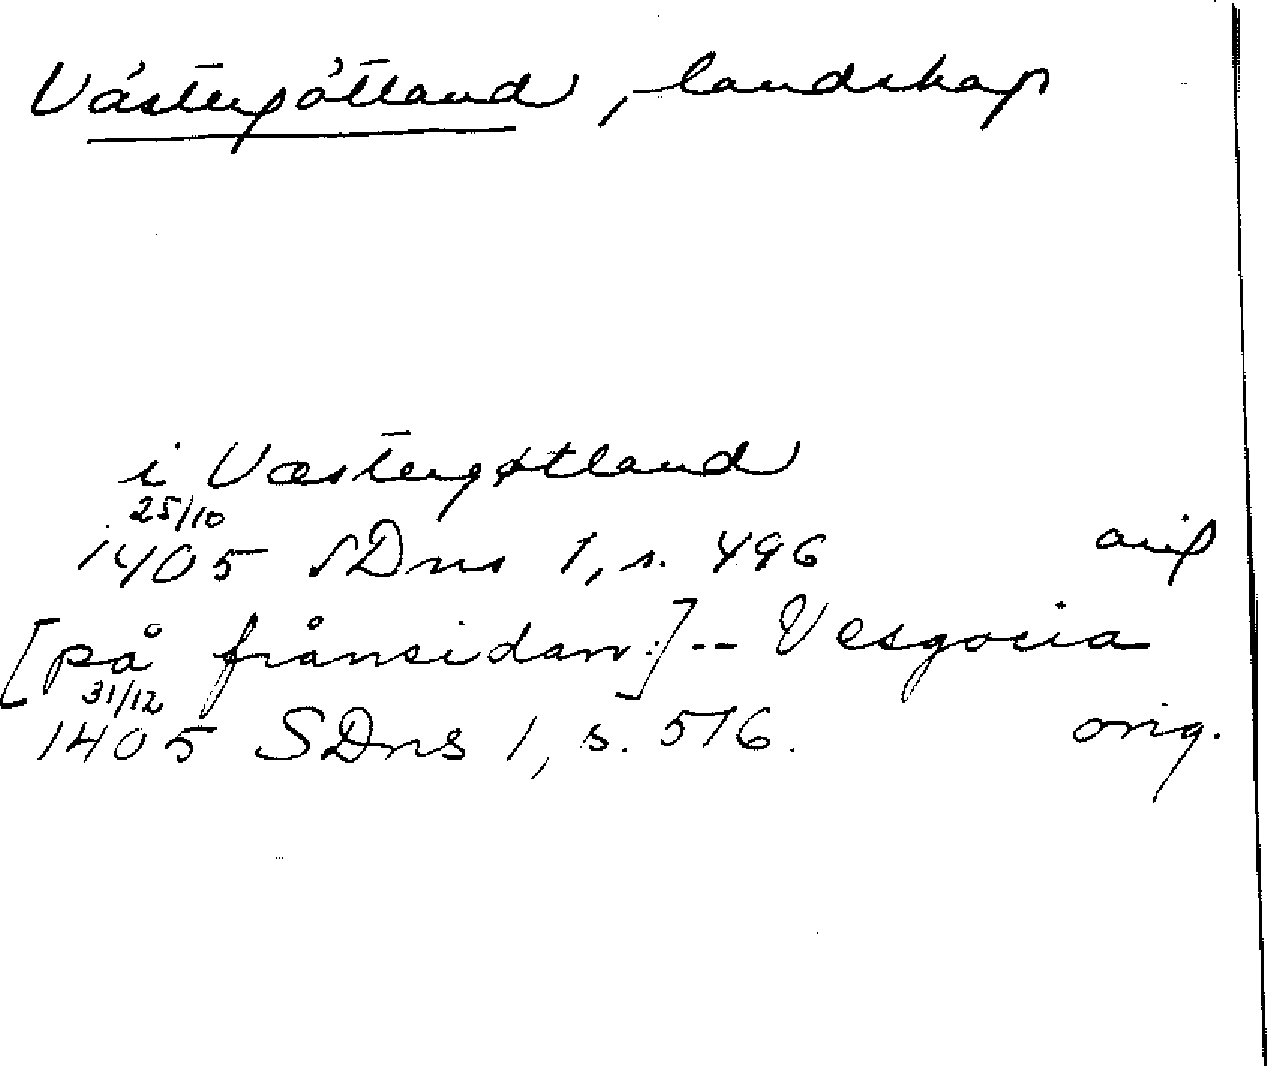 Västergötland, landskap
i Væstergøtland
25/10
1405 SDns 1, s. 496 orig
[på frånsidan:] -- Vesgocia
31/12
1405 SDns 1, s. 516. orig.